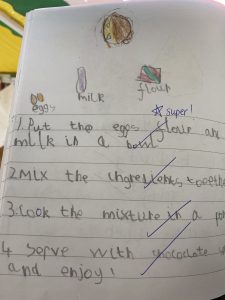 eggs
milk
flour
super!
1. Put the eggs flour and
milk in a bowl
2 Mix the ingredients togethe
3. Cook the mixture in a pan
4 Serve with chocolate
and enjoy!